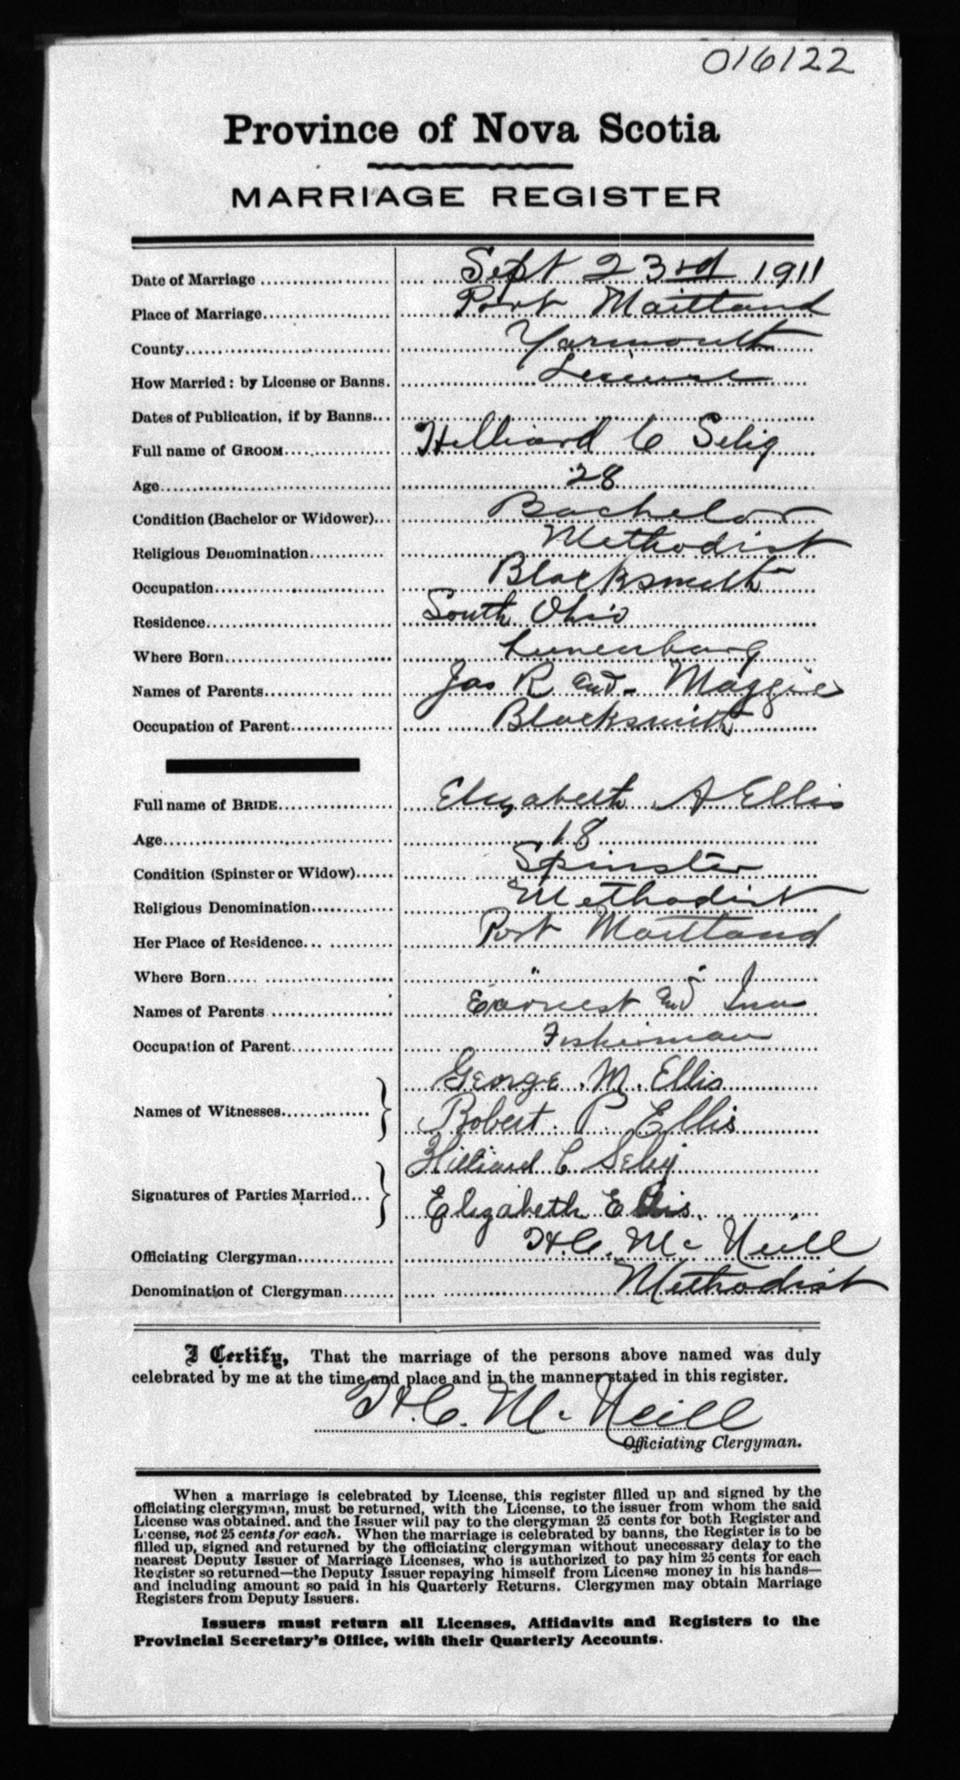 016122
Province of Nova Scotia
MARRIAGE REGISTER
Date of Marriage Sept 23rd 1911
Place of Marriage Port Maitland
County Yarmouth
How Married: by License or Banns. License
Dates of Publication, if by Banns
Full name of GROOM Hilliard C Selig
Age 28
Condition (Bachelor or Widower) Bachelor
Religious Denomination Methodist
Occupation Blacksmith
Residence South Ohio
Where Born Lunenburg
Names of Parents Jas R and Maggie
Occupation of Parent Blacksmith
Full name of BRIDE Elizabeth A Ellis
Age 18
Condition (Spinster or Widow) Spinster
Religious Denomination Methodist
Her Place of Residence Port Maitland
Where Born " "
Names of Parents Earnest and Ina
Occupation of Parent Fisherman
George M. Ellis
Names of Witnesses
Robert P. Ellis
Hilliard C Selig
Signatures of Parties Married
Elizabeth Ellis.
Officiating Clergyman H.C. McNeill
Denomination of Clergyman Methodist
I Certify, That the marriage of the persons above named was duly
celebrated by me at the time and place and in the manner stated in this register.
H.C. McNeill
Officiating Clergyman.
When a marriage is celebrated by License, this register filled up and signed by the
officiating clergyman, must be returned, with the License, to the issuer from whom the said
License was obtained. and the Issuer will pay to the clergyman 25 cents for both Register and
License, not 25 cents for each. When the marriage is celebrated by banns, the Register is to be
filled up, signed and returned by the officiating clergyman without unecessary delay to the
nearest Deputy Issuer of Marriage Licenses, who is authorized to pay him 25 cents for each
Register so returned—the Deputy Issuer repaying himself from License money in his hands—
and including amount so paid in his Quarterly Returns. Clergymen may obtain Marriage
Registers from Deputy Issuers.
Issuers must return all Licenses, Affidavits and Registers to the
Provincial Secretary's Office, with their Quarterly Accounts.